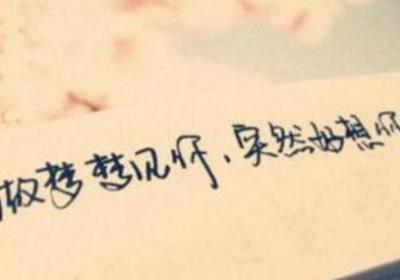 做梦梦见你，突然好想你